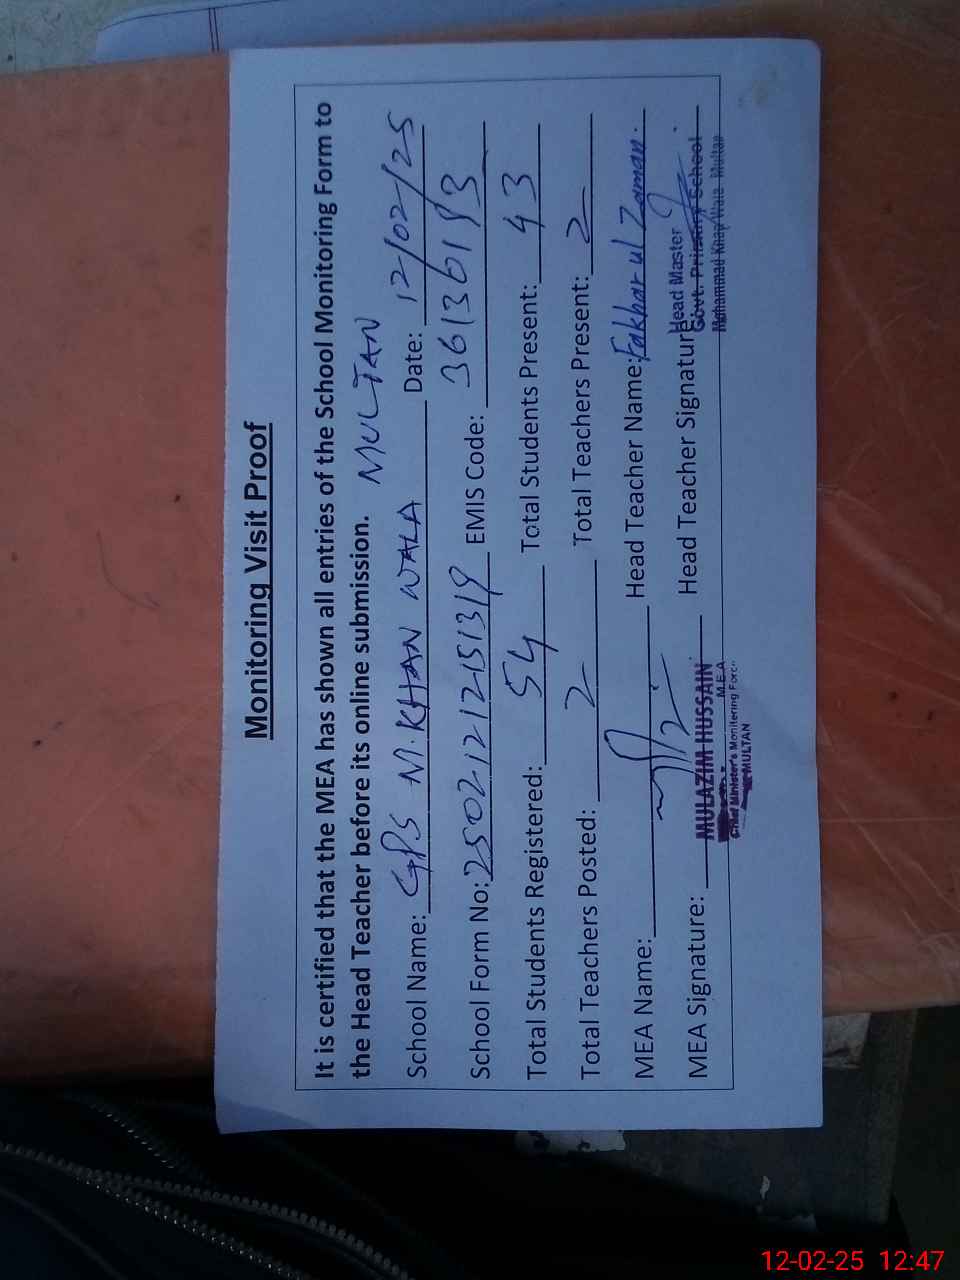 Monitoring Visit Proof
It is certified that the MEA has shown all entries of the School Monitoring Form to
the Head Teacher before its online submission. MULTAN
School Name: GPS M. KHAN WALA Date: 12/02/25
School Form No: 25021212151319 EMIS Code: 36130193
Total Students Registered: 54 Total Students Present: 43
Total Teachers Posted: 2 Total Teachers Present: 2
MEA Name: Head Teacher Name: Fakhar ul Zaman.
MEA Signature: MULAZIM HUSSAIN Head Teacher Signature: Head Master
M.E.A Govt. Primary School
Chief Minister's Monitering Force Mohammad Khan Wala Multan
MULTAN
12-02-25 12:47